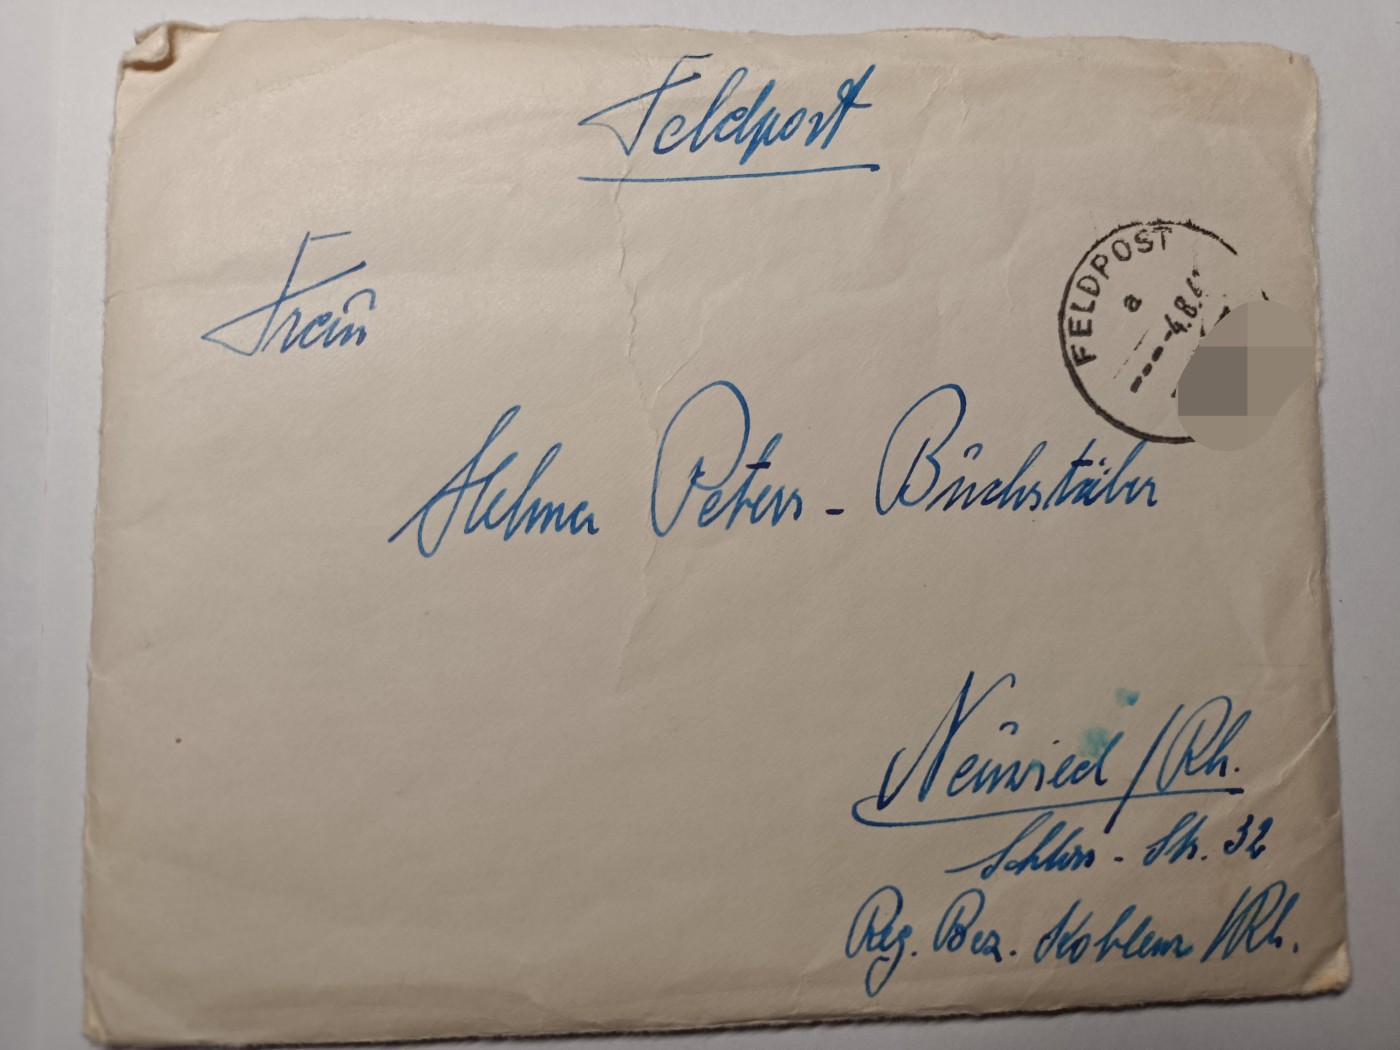 Feldpost
FELDPOST
a
-4.8.4
Frau
Helma Peters - Buchstäber
Neuwied / Rh.
Schloss - Str. 32
Reg. Bez. Koblenz / Rh.